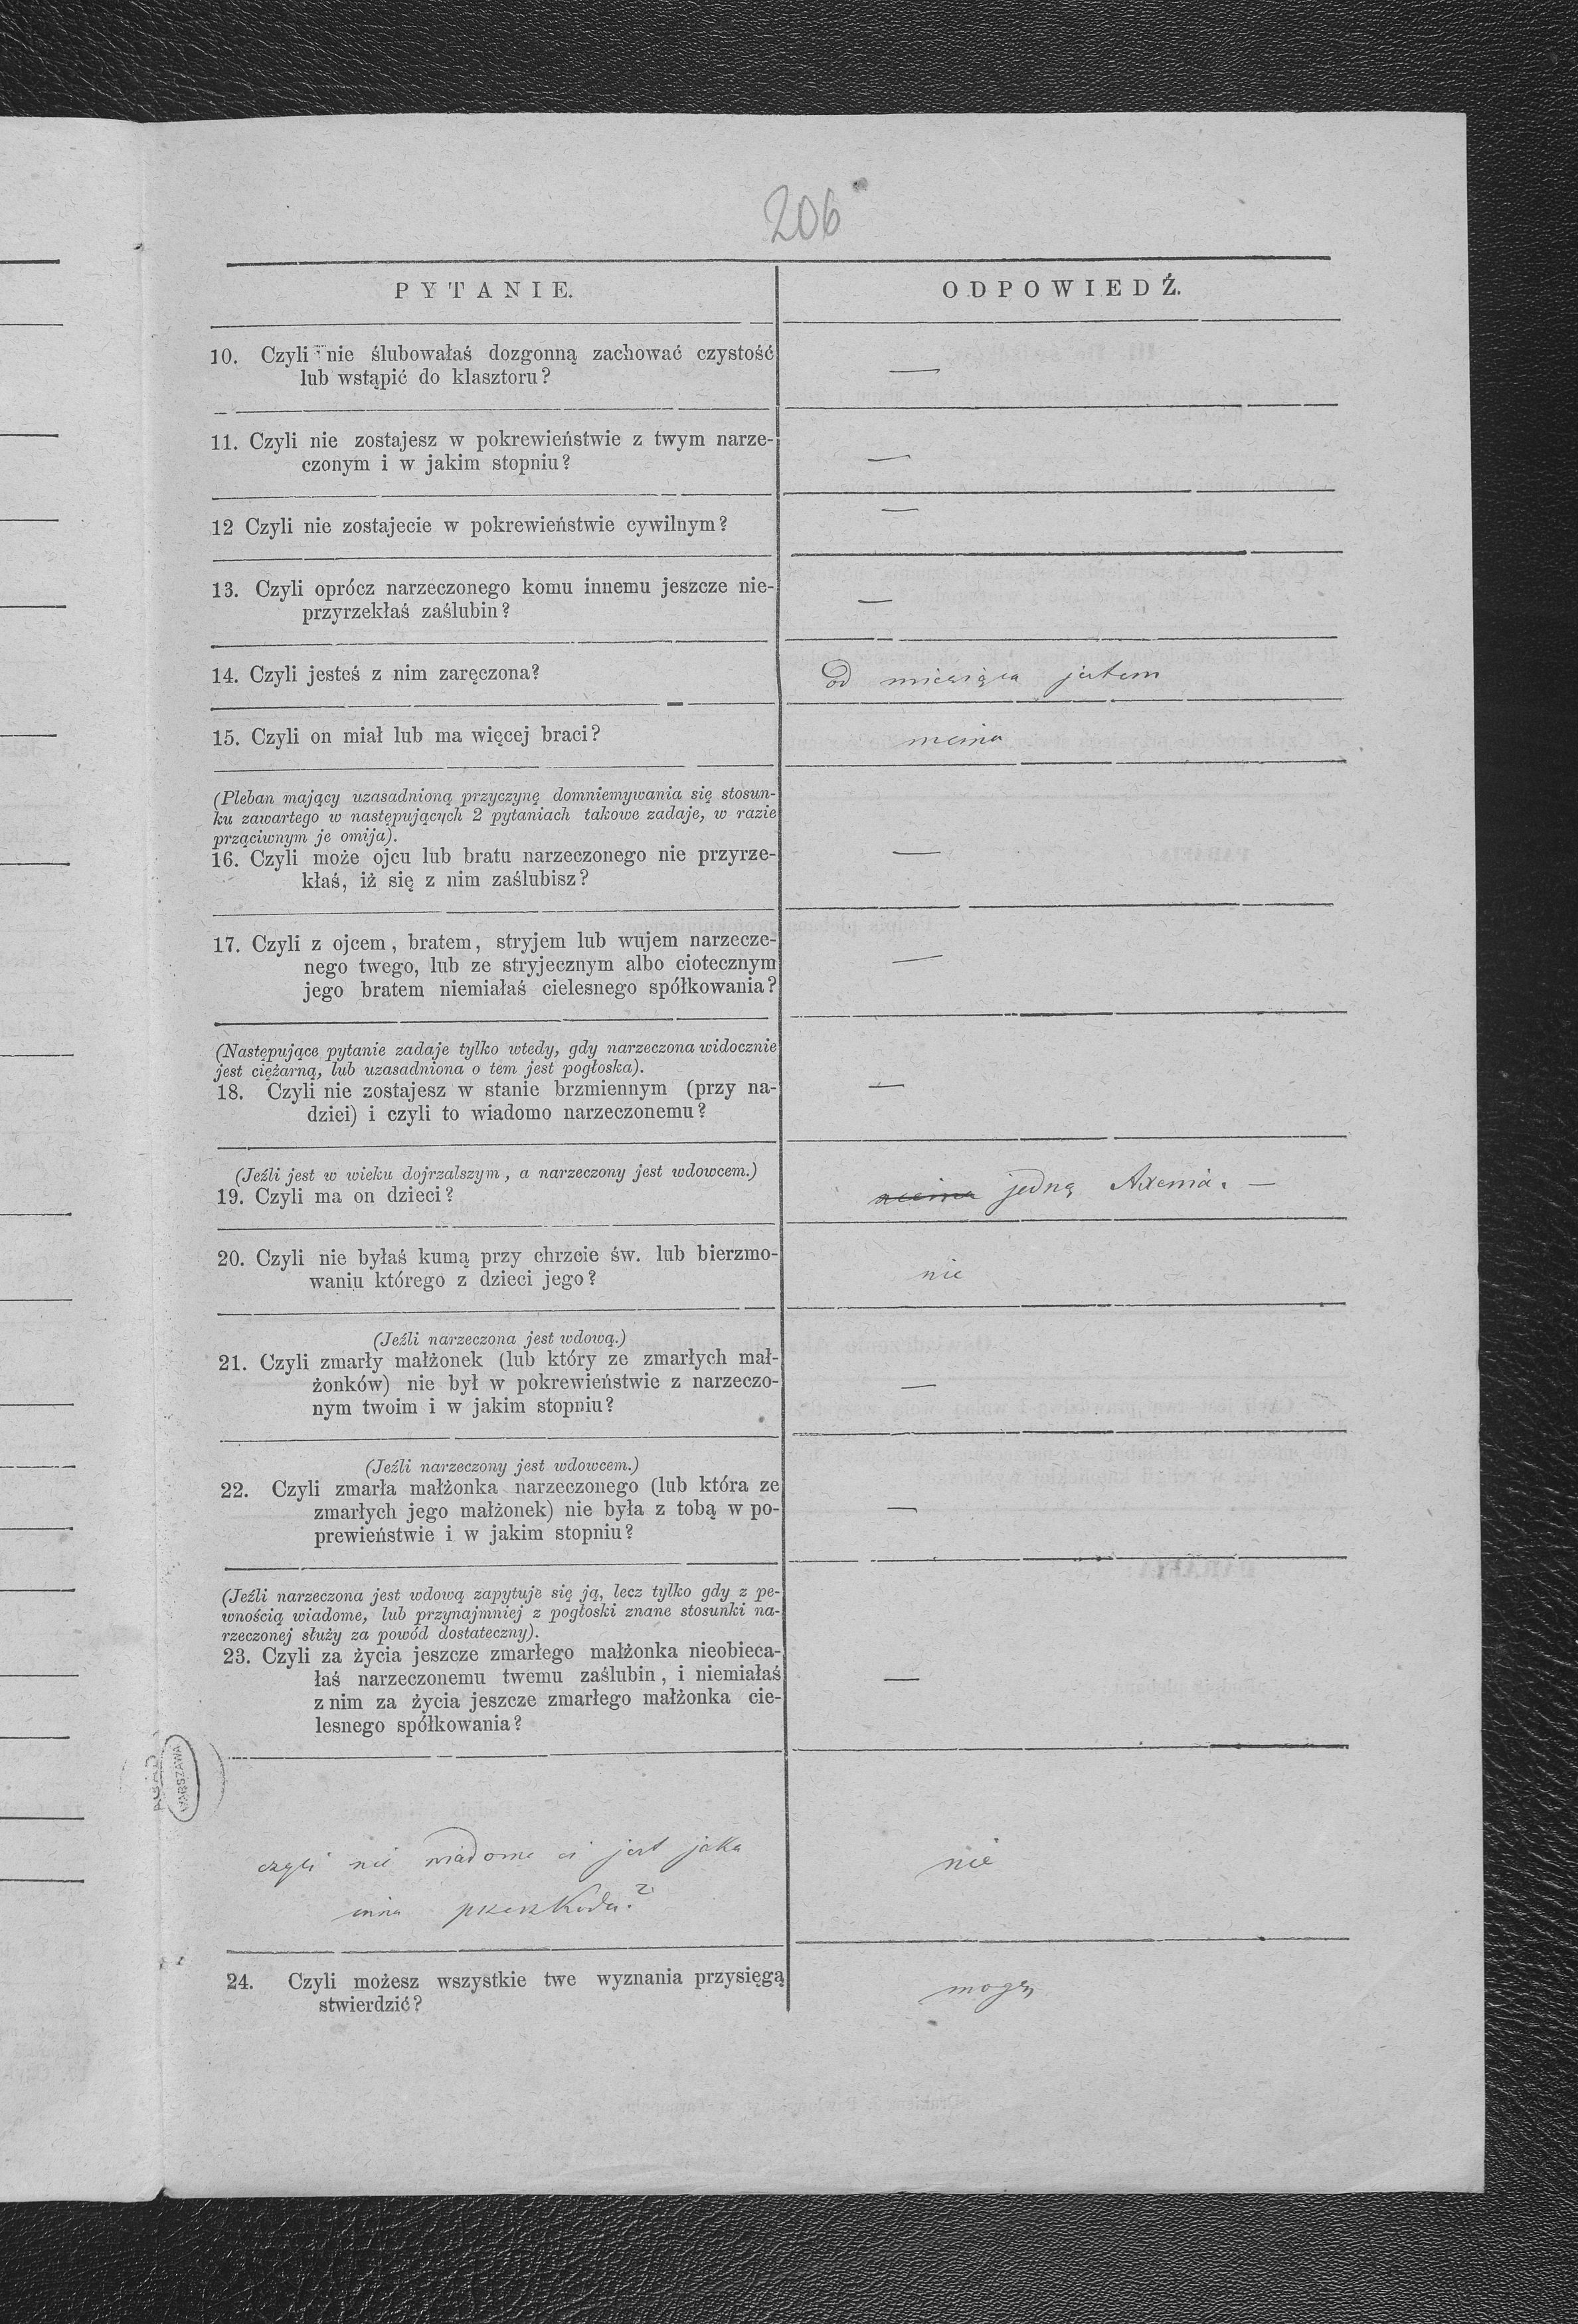 206
PYTANIE.
ODPOWIEDŹ.
10. Czyli nie ślubowałaś dozgonną zachować czystość
lub wstąpić do klasztoru?
—
11. Czyli nie zostajesz w pokrewieństwie z twym narze-
czonym i w jakim stopniu?
—
12 Czyli nie zostajecie w pokrewieństwie cywilnym?
—
13. Czyli oprócz narzeczonego komu innemu jeszcze nie-
przyrzekłaś zaślubin?
—
14. Czyli jesteś z nim zaręczona?
Od miesiąca jestem
15. Czyli on miał lub ma więcej braci?
niema
(Pleban mający uzasadnioną przyczynę domniemywania się stosun-
ku zawartego w następujących 2 pytaniach takowe zadaje, w razie
prząciwnym je omija).
16. Czyli może ojcu lub bratu narzeczonego nie przyrze-
kłaś, iż się z nim zaślubisz?
—
17. Czyli z ojcem, bratem, stryjem lub wujem narzecze-
nego twego, lub ze stryjecznym albo ciotecznym
jego bratem niemiałaś cielesnego spółkowania?
—
(Następujące pytanie zadaje tylko wtedy, gdy narzeczona widocznie
jest ciężarną, lub uzasadniona o tem jest pogłoska).
18. Czyli nie zostajesz w stanie brzmiennym (przy na-
dziei) i czyli to wiadomo narzeczonemu?
—
(Jeźli jest w wieku dojrzalszym, a narzeczony jest wdowcem.)
19. Czyli ma on dzieci?
niema jedną Axenia. —
20. Czyli nie byłaś kumą przy chrzcie św. lub bierzmo-
waniu którego z dzieci jego?
nie
(Jeźli narzeczona jest wdową.)
21. Czyli zmarły małżonek (lub który ze zmarłych mał-
żonków) nie był w pokrewieństwie z narzeczo-
nym twoim i w jakim stopniu?
—
(Jeźli narzeczony jest wdowcem.)
22. Czyli zmarła małżonka narzeczonego (lub która ze
zmarłych jego małżonek) nie była z tobą w po-
prewieństwie i w jakim stopniu?
—
(Jeźli narzeczona jest wdową zapytuje się ją, lecz tylko gdy z pe-
wnością wiadome, lub przynajmniej z pogłoski znane stosunki na-
rzeczonej służy za powód dostateczny).
23. Czyli za życia jeszcze zmarłego małżonka nieobieca-
łaś narzeczonemu twemu zaślubin, i niemiałaś
z nim za życia jeszcze zmarłego małżonka cie-
lesnego spółkowania?
—
AGAD
WARSZAWA
czyli nie wiadome ci jest jaka
inna przeszkoda?
nie
24. Czyli możesz wszystkie twe wyznania przysięgą
stwierdzić?
mogę